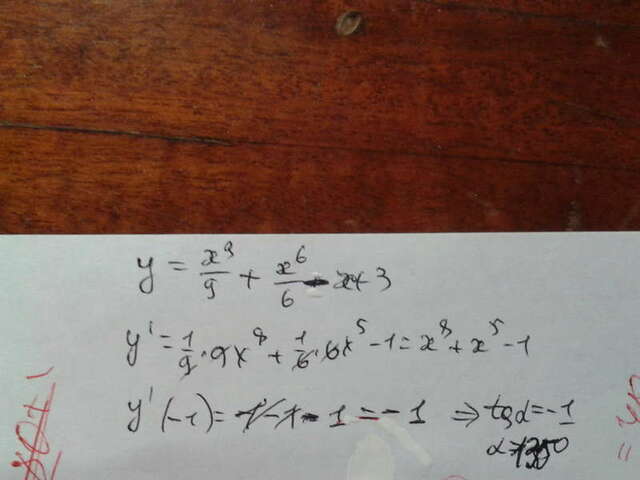 y = x⁹/9 + x⁶/6 - x + 3
y' = 1/9 · 9x⁸ + 1/6 · 6x⁵ - 1 = x⁸ + x⁵ - 1
y'(-1) = 1 - 1 - 1 = -1 ⇒ tgα = -1